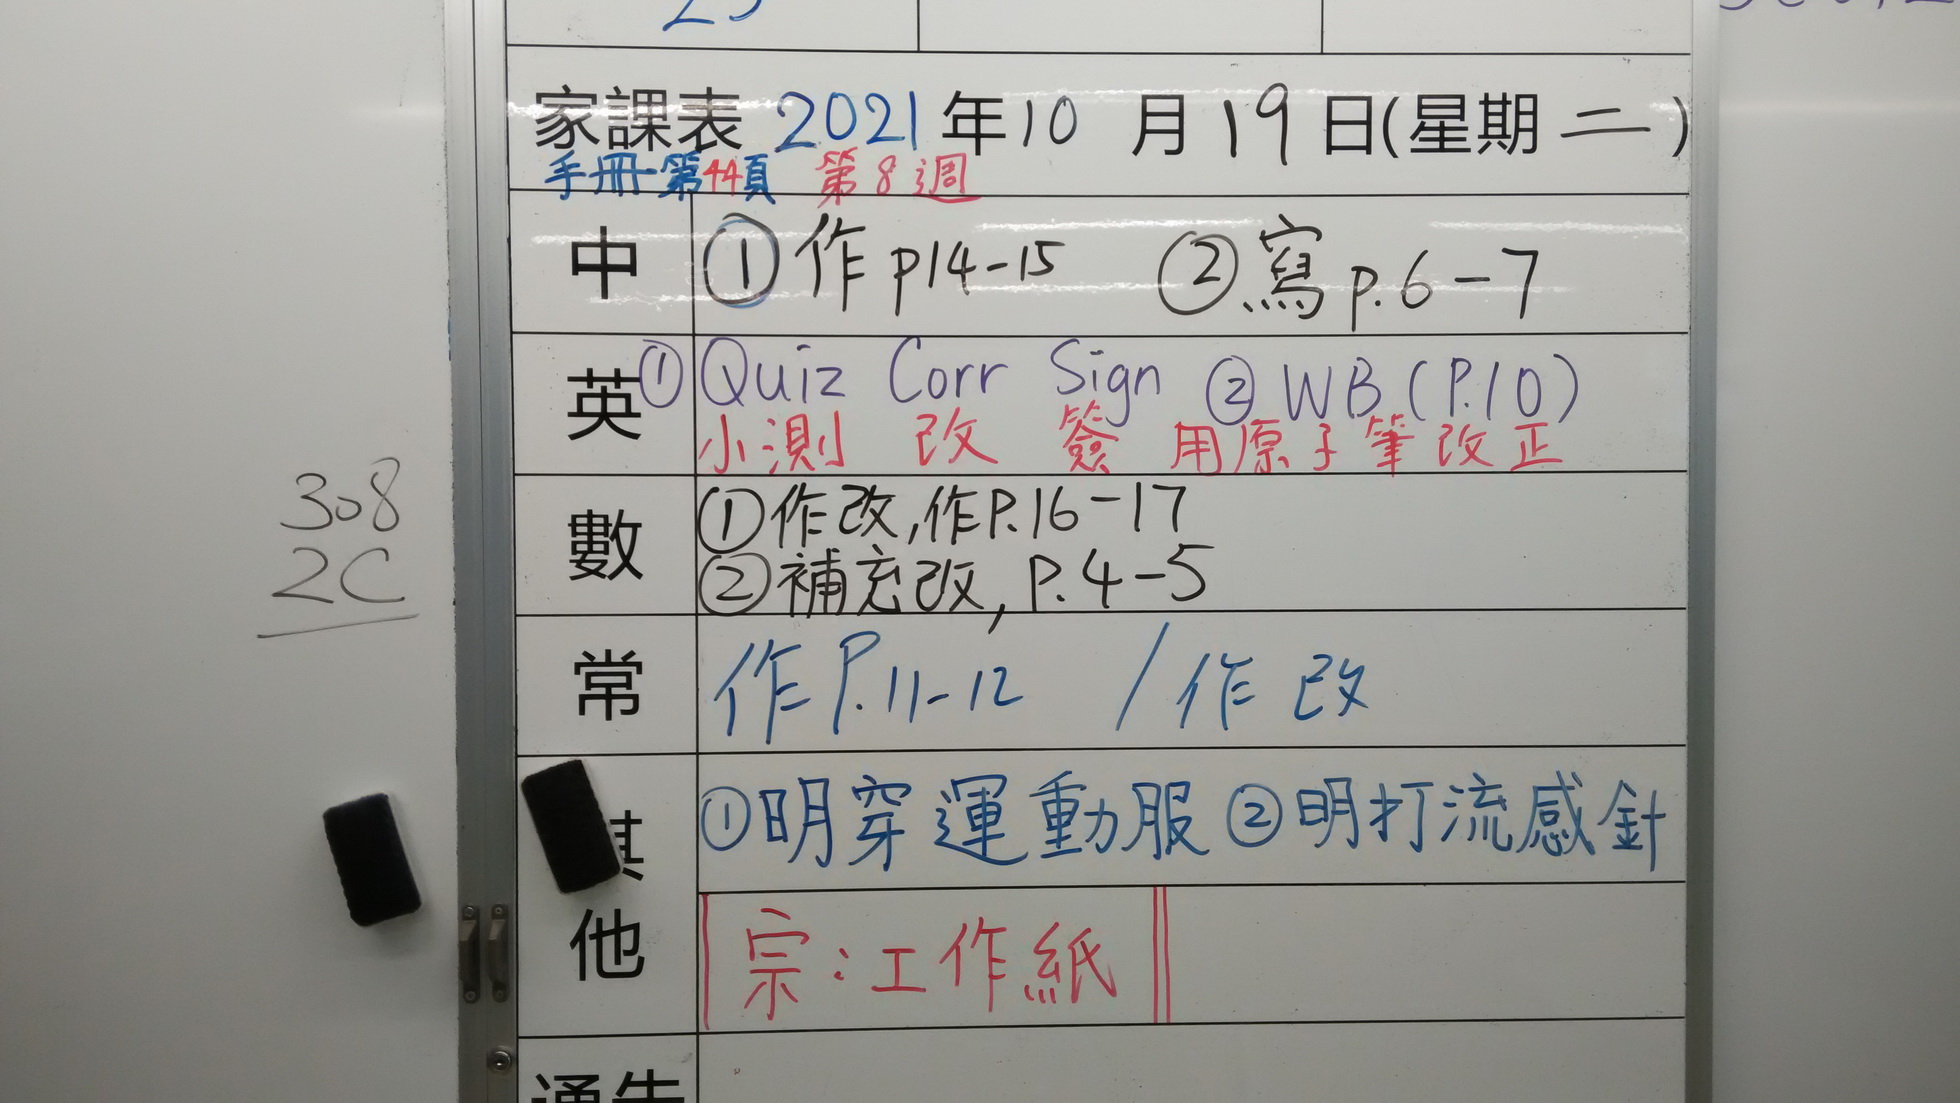 家課表 2021年10月19日(星期二)
手冊-第44頁 第8週
中 ①作p14-15 ②寫p.6-7
英 ①Quiz Corr Sign ②WB(P.10)
小測 改 簽 用原子筆改正
數 ①作改,作P.16-17
②補充改,P.4-5
308
2C
常 作P.11-12 /作改
其他 ①明穿運動服②明打流感針
宗:工作紙
通告